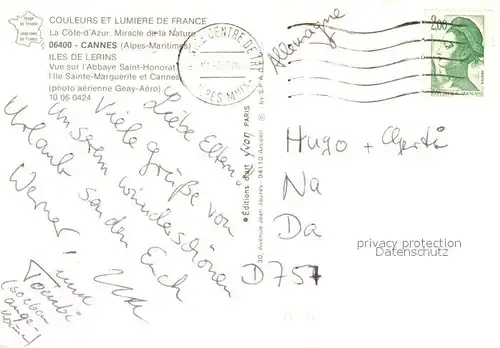 COULEURS ET LUMIERE DE FRANCE
La Côte-d'Azur. Miracle de la Nature
06400 - CANNES (Alpes-Maritimes)
ILES DE LERINS
Vue sur l'Abbaye Saint-Honorat
l'Ile Sainte-Marguerite et Cannes
(photo aérienne Geay-Aéro)
10 06 0424
Image de France
Imprimée de France
Allemagne
2,00
Liebe Eltern!
Viele Grüße von
unserem wunderschönen
Urlaub senden Euch
Werner
Editions d'art yvon PARIS
30, Avenue Jean Jaurès - 94110 Arcueil
Hugo +
Na
Da
D 757
privacy protection
Datenschutz